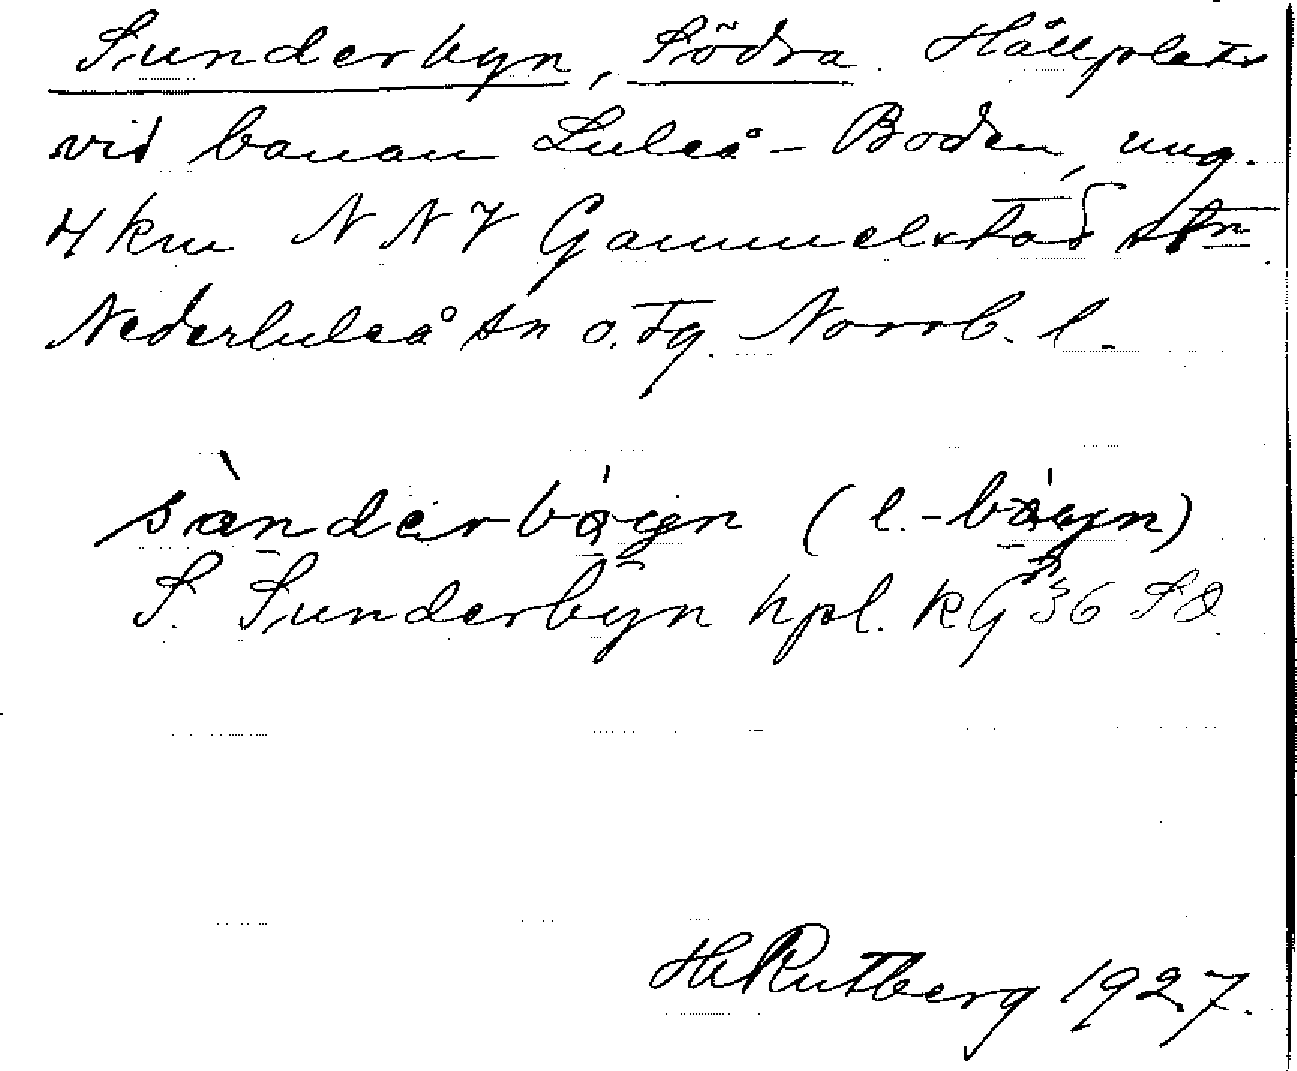 Sunderbyn, Södra. Hållplats
vid banan Luleå - Boden, ung.
4 km NNV Gammelstads stn
Nederluleå sn o. tg. Norrb. l.
sànderbýgn (l. -
S. Sunderbyn hpl. KG 36 SO
H Rutberg 1927.